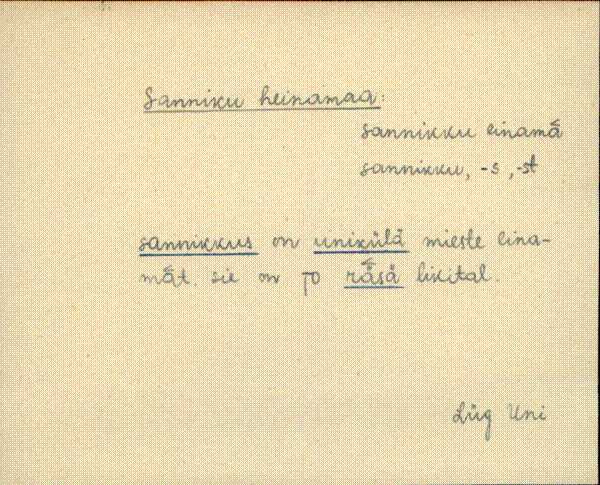 Sanniku heinamaa:
sannikku einamā̆
sannikku, -s, -st
sannikkus on unikülä mieste eina-
mā̆t. sie on jo rā̆sä likital.
Lüg Uni